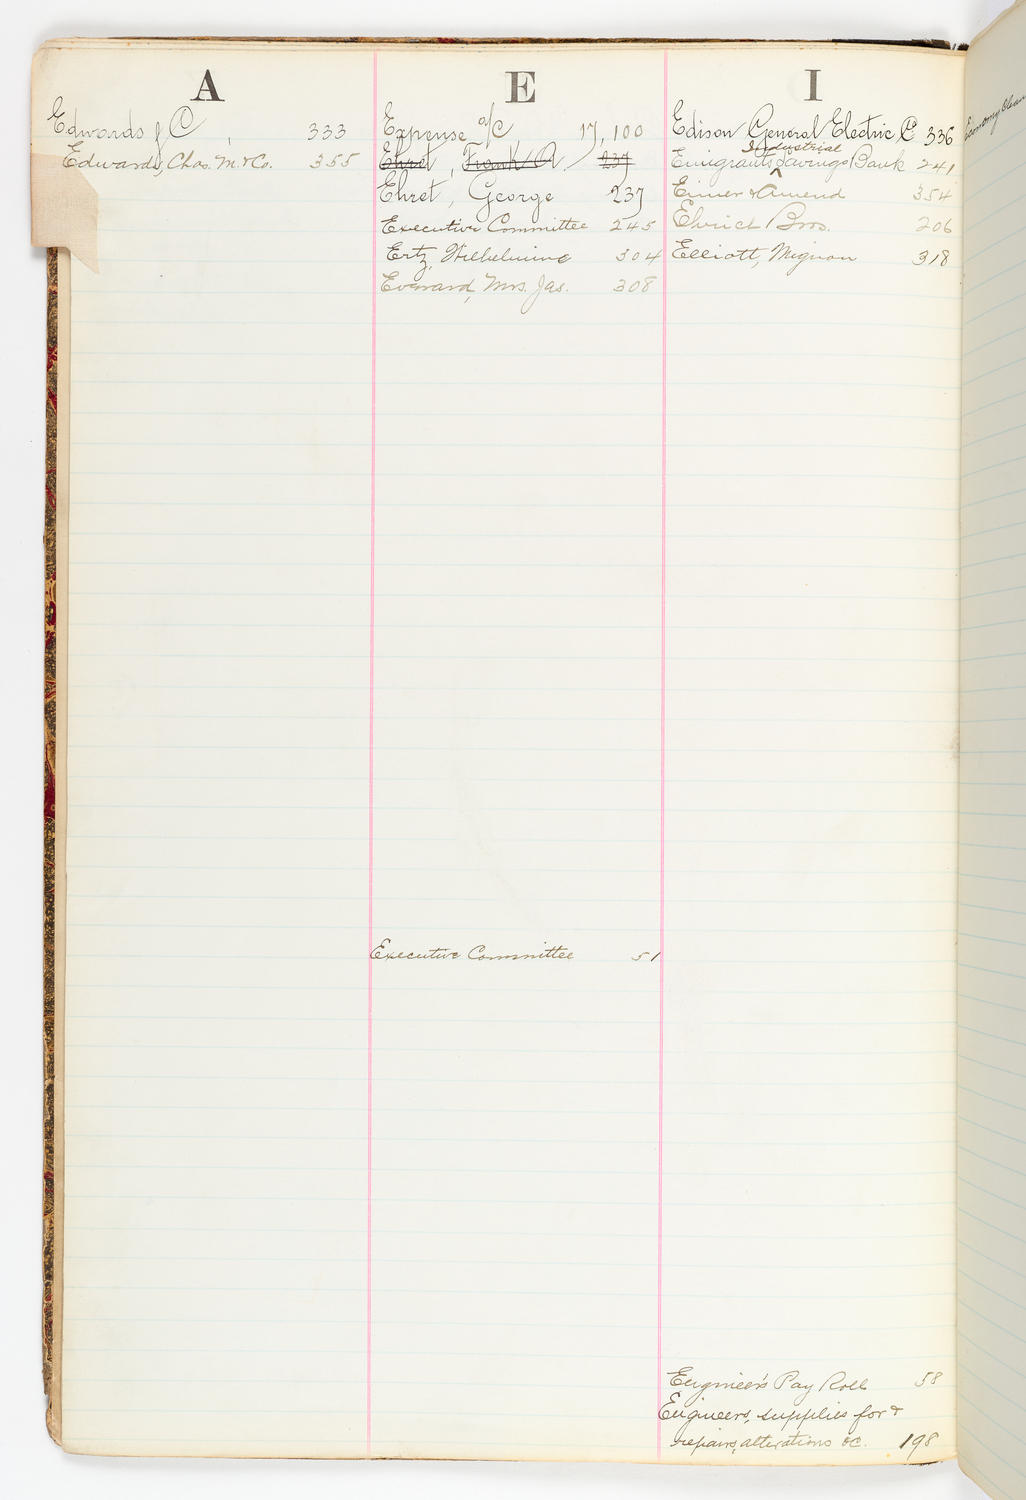 A
Edwards & C 333
Edwards, Chas. M. & Co. 355
E
Expense a/c 17, 100
Ehret, Frank A. 237
Ehret, George 237
Executive Committee 245
Ertz, Wilhelmine 304
Everard, Mrs. Jas. 308
Executive Committee 51
I
Edison General Electric Co 336
Industrial
Emigrants Savings Bank 241
Eimer & Amend 354
Ehrich Bros. 206
Elliott, Mignon 318
Engineer's Pay Roll 58
Engineers, supplies for &
repairs, alterations &c. 198
Economy